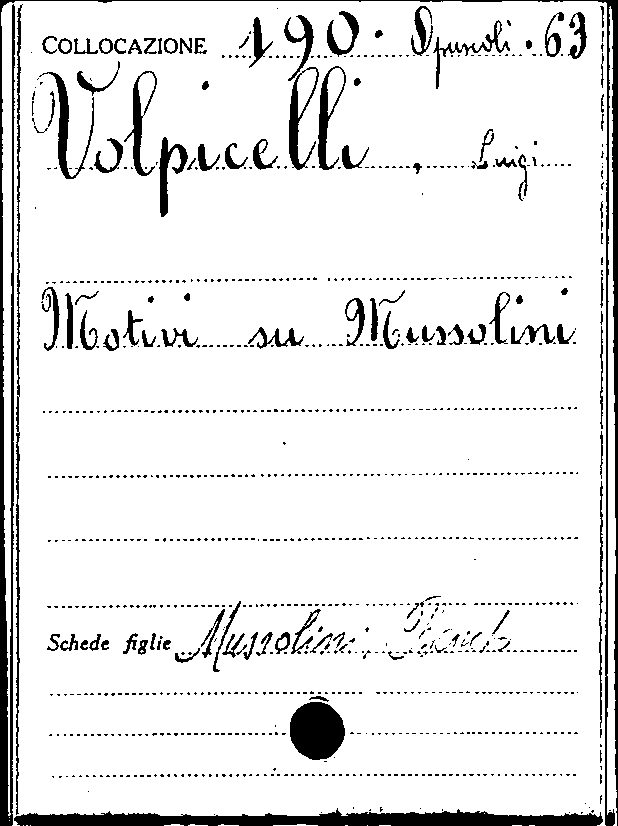 COLLOCAZIONE 190. Opuscoli. 63
Volpicelli, Luigi
Motivi su Mussolini
Schede figlie Mussolini,